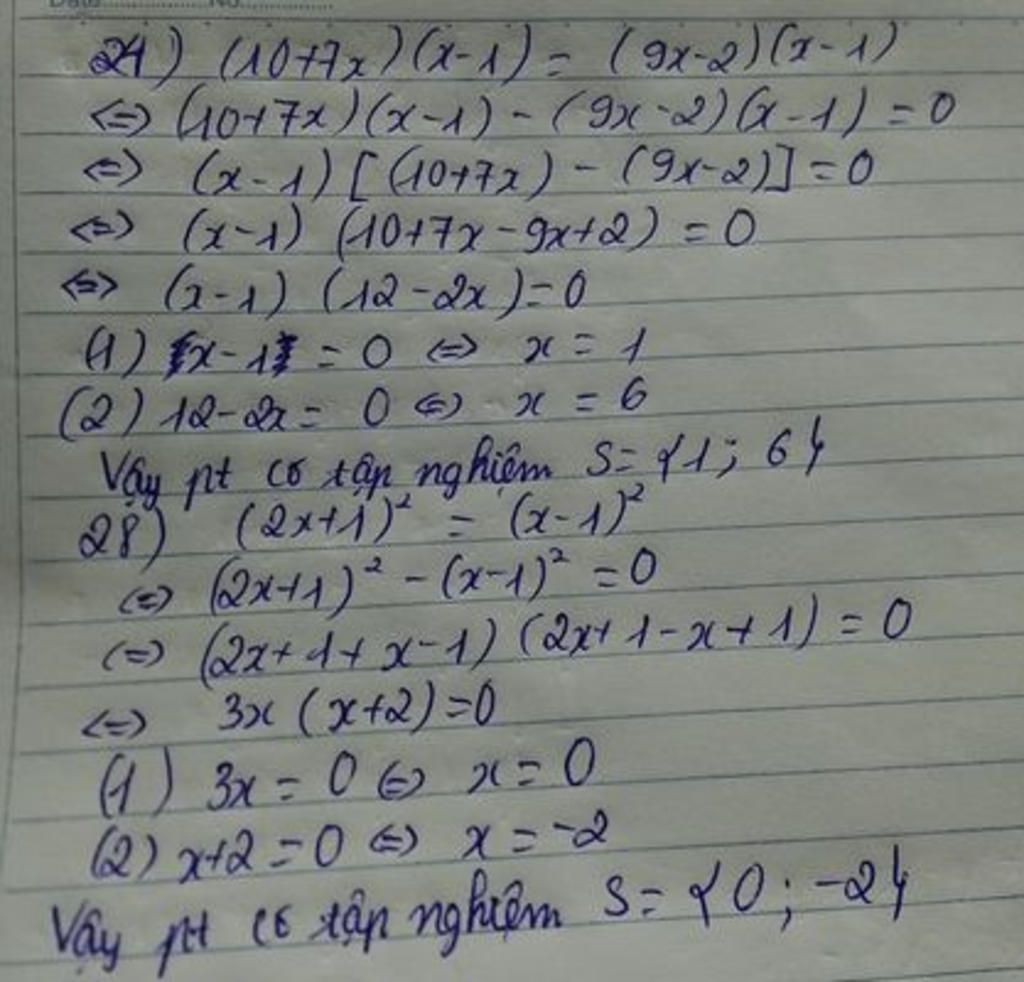 Date No.
24) (10+7x)(x-1) = (9x-2)(x-1)
<=> (10+7x)(x-1) - (9x-2)(x-1) = 0
<=> (x-1) [(10+7x) - (9x-2)] = 0
<=> (x-1) (10+7x-9x+2) = 0
<=> (x-1) (12-2x) = 0
(1) x-1 = 0 <=> x = 1
(2) 12-2x = 0 <=> x = 6
Vậy pt có tập nghiệm S = {1; 6}
28) (2x+1)² = (x-1)²
<=> (2x+1)² - (x-1)² = 0
<=> (2x+1+x-1) (2x+1-x+1) = 0
<=> 3x (x+2) = 0
(1) 3x = 0 <=> x = 0
(2) x+2 = 0 <=> x = -2
Vậy pt có tập nghiệm S = {0; -2}